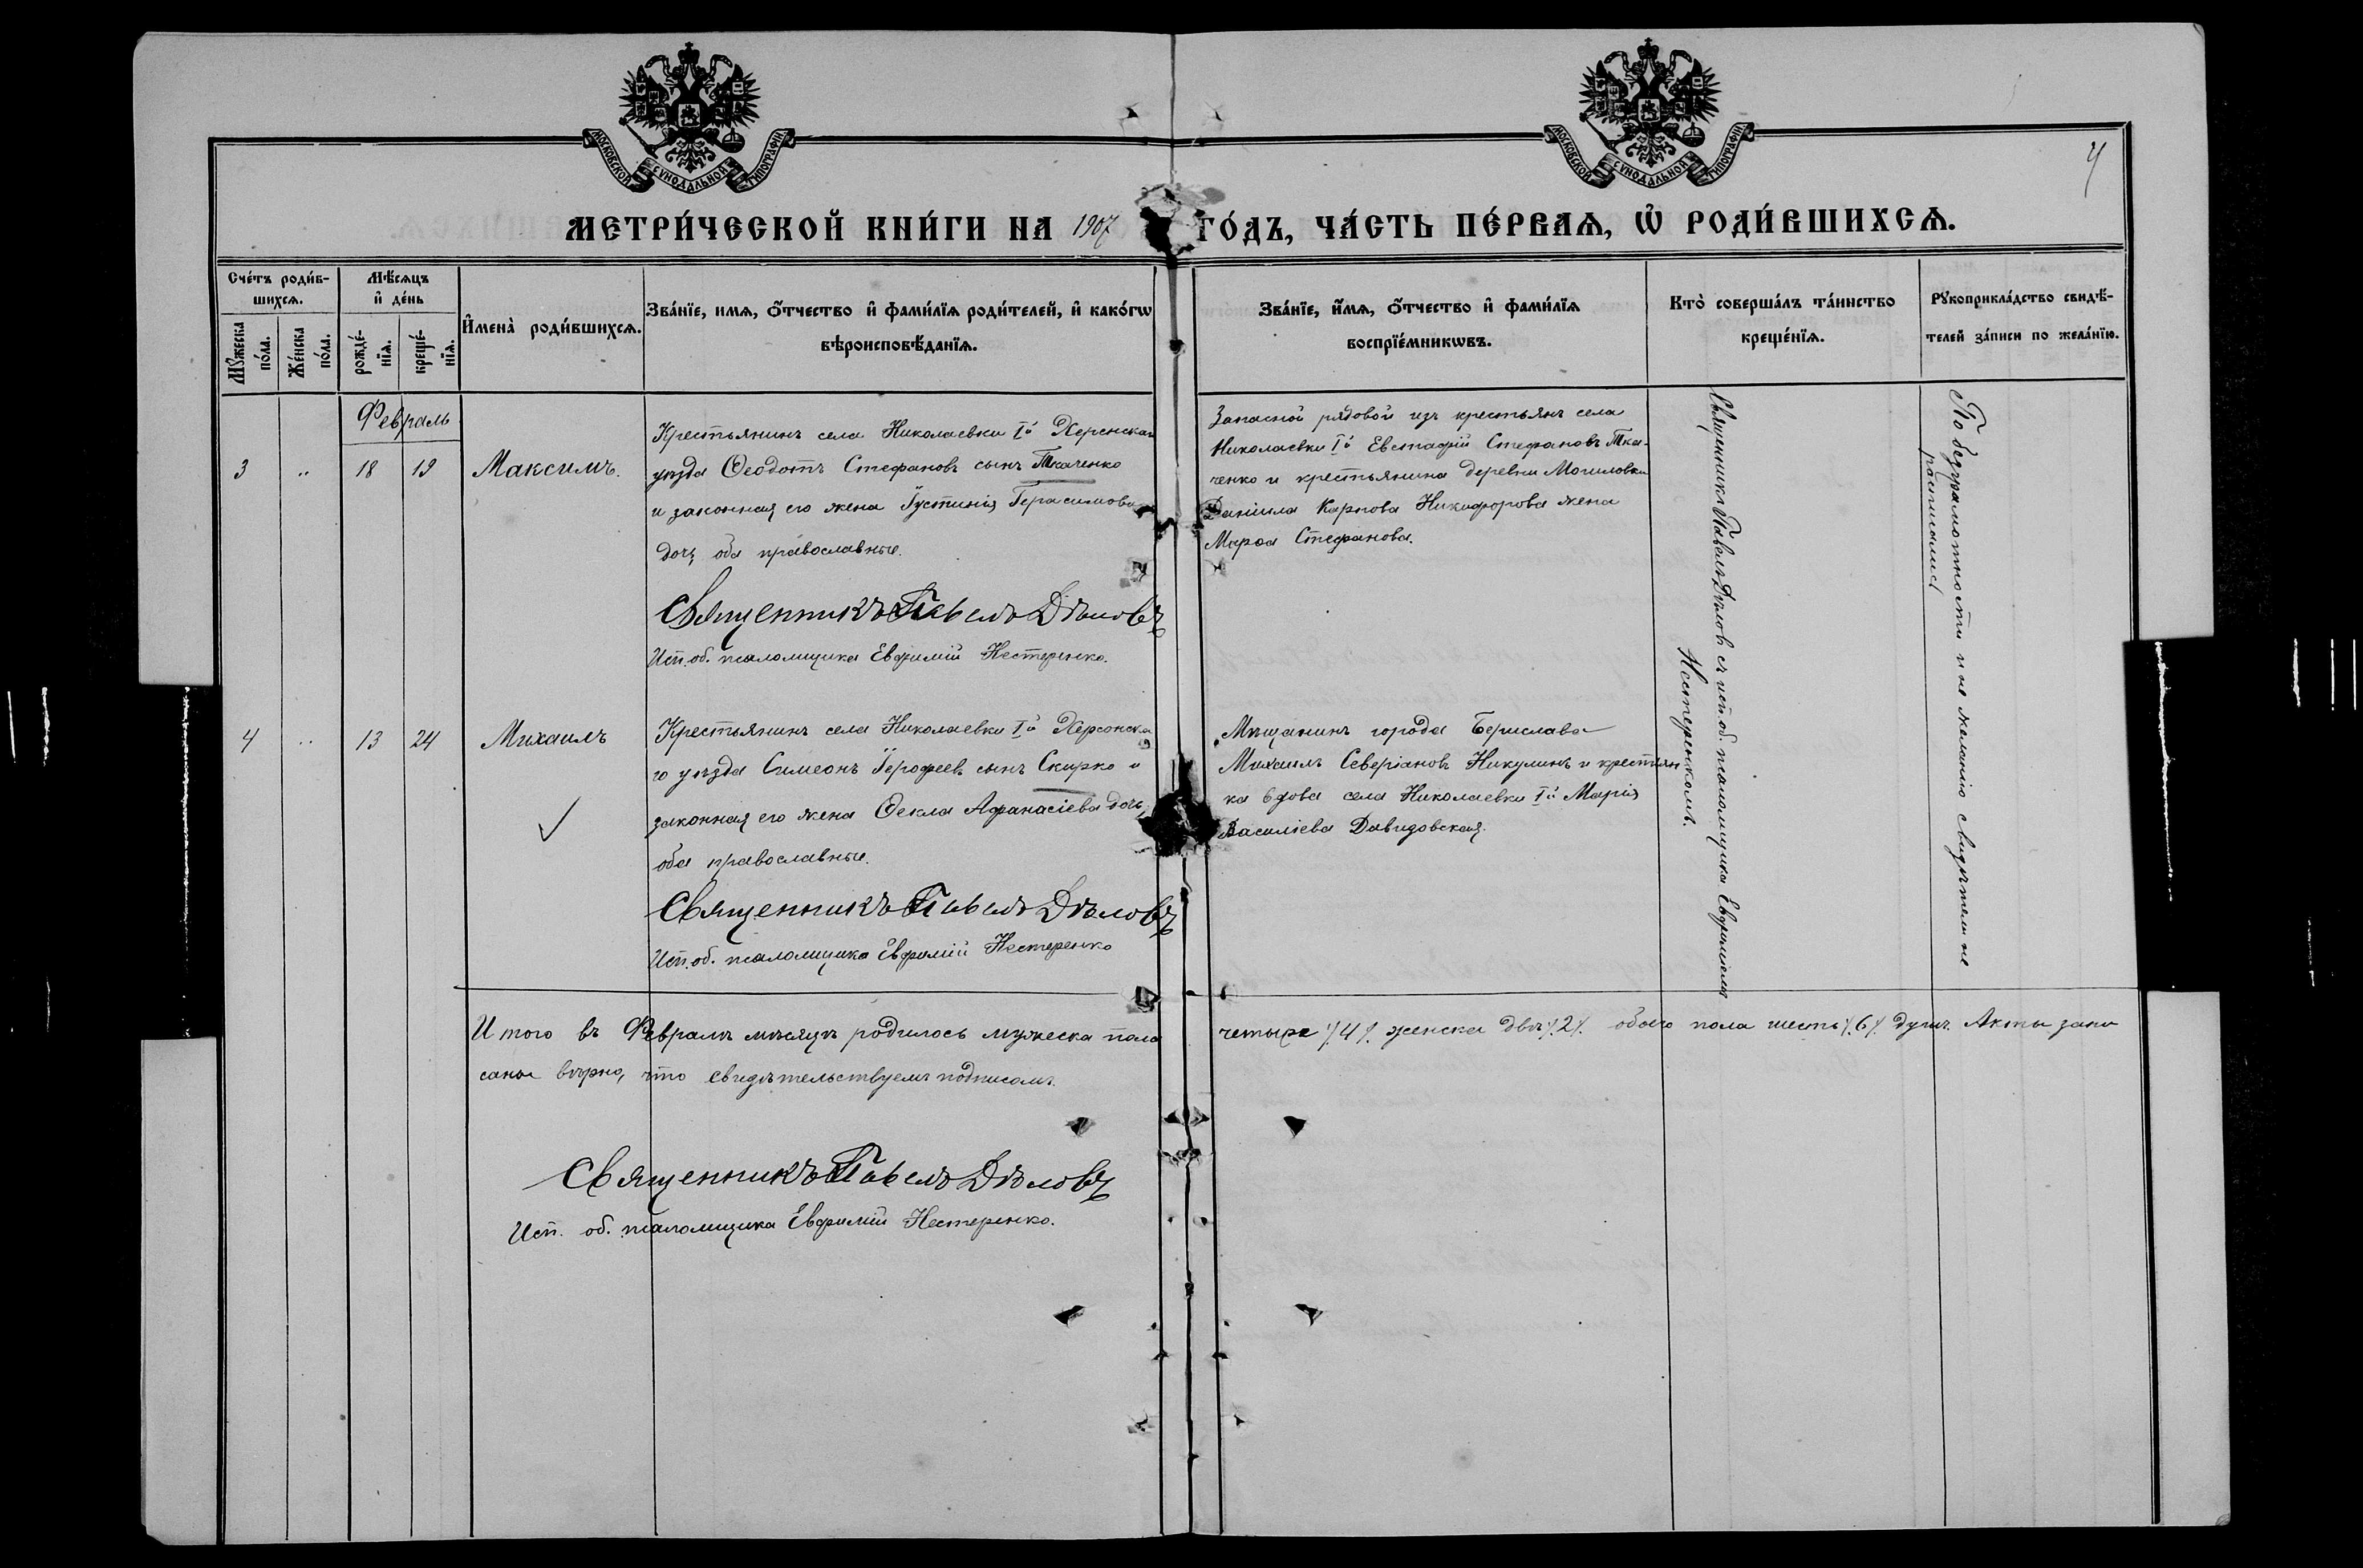 МОСКОВСКОЙ СѴНОДАЛЬНОЙ ТИПОГРАФІИ
МОСКОВСКОЙ СѴНОДАЛЬНОЙ ТИПОГРАФІИ
4
МЕТРИ́ЧЕСКОЙ КНИ́ГИ НА 1907 ГО́ДЪ, ЧА́СТЬ ПЕ́РВАѦ, Ѡ҆ РОДИ́ВШИХСѦ.
Сче́тъ роди́в-
шихсѧ.
Мꙋ́жеска по́ла.
Же́нска по́ла.
Мѣ́сѧцъ
и҆ де́нь
рожде́-
нїѧ.
креще́-
нїѧ.
И҆мена̀ роди́вшихсѧ.
Зва́нїе, имѧ, ѻ҆́тчество и҆ фами́лїѧ роди́телей, и҆ како́гѡ
вѣроисповѣ́данїѧ.
Зва́нїе, и҆́мѧ, ѻ҆́тчество и҆ фами́лїѧ
воспрїе́мникѡвъ.
Кто̀ соверша́лъ та́инство
креще́нїѧ.
Рꙋкоприкла́дство свидѣ́-
телей за́писи по жела́нїю.
Февраль
3
..
18
19
Максимъ.
Крестьянинъ села Николаевки Iй Херсонскаго
уѣзда Ѳеодотъ Стефановъ сынъ Ткаченко
и законная его жена Іустинія Герасимова
дочь, оба православные.
Священникъ Павелъ Дѣловъ
Исп. об. псаломщика Евфимій Нестеренко.
Запасной рядовой изъ крестьянъ села
Николаевки Iй Евстафій Стефановъ Тка-
ченко и крестьянина деревни Могиловки
Даніила Карпова Никифорова жена
Марѳа Стефанова.
Священникъ Павелъ Дѣловъ съ исп. об. псаломщика Евфиміемъ
Нестеренкомъ.
По безграмотности и не желанію свидѣтели не
росписались
4
..
13
24
Михаилъ
Крестьянинъ села Николаевки Iй Херсонска
го уѣзда Симеонъ Іерофеевъ сынъ Скирко и
законная его жена Ѳекла Афанасіева дочь,
оба православные.
Священникъ Павелъ Дѣловъ
Исп. об. псаломщика Евфимій Нестеренко
Мѣщанинъ города Берислава
Михаилъ Северіановъ Никулинъ и крестьян
ка вдова села Николаевки Iй Марія
Василіева Давидовская.
Итого въ Февралѣ мѣсяцѣ родилось мужеска пола четыре /4/. женска двѣ /2/. обоего пола шесть /6/. душъ. Акты запи
саны вѣрно, что свидѣтельствуемъ подписомъ.
Священникъ Павелъ Дѣловъ
Исп. об. псаломщика Евфимій Нестеренко.